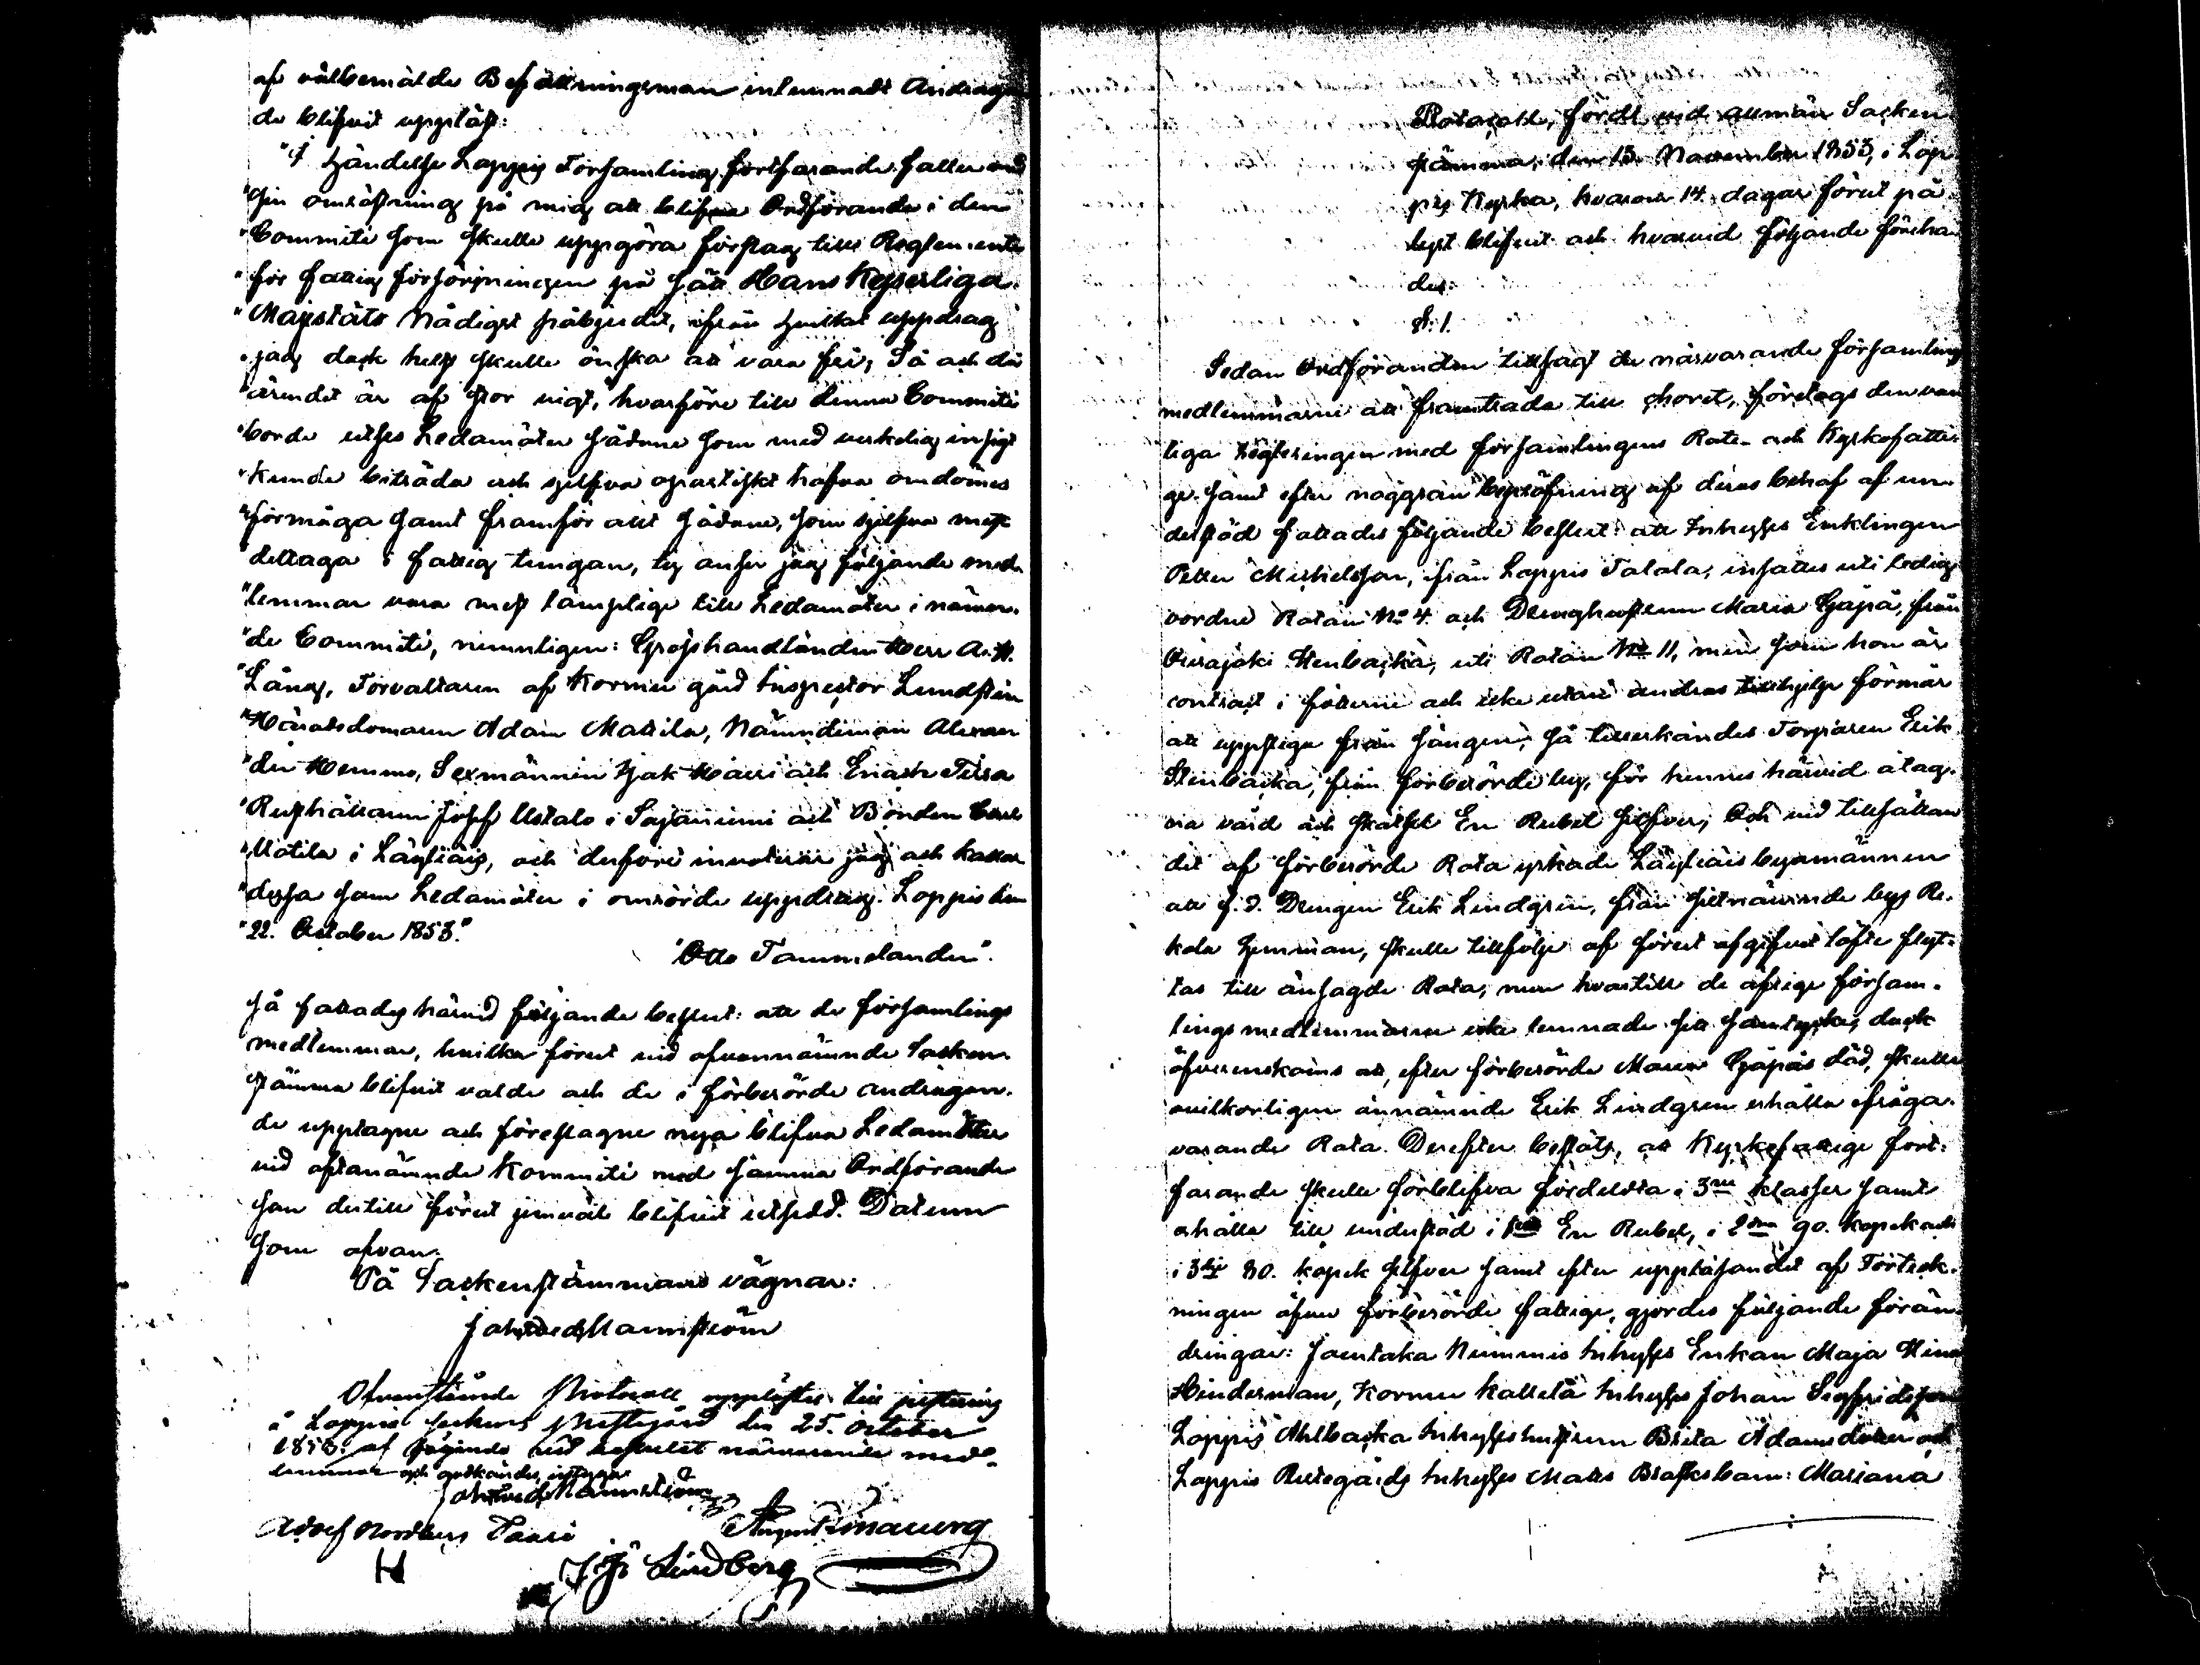 af välbemälde Befallningsman inlemnadt Andragan
de blifvit uppläst:
"I händelse Loppis Församling fortfarande faller ond
"sin omröstning på mig att blifva Ordförande i den
"Committé som skulle uppgöra förslag till Reglemente
"för fattigförsörjningen på sätt Hans Kejserliga
"Majestäts Nådigst påbjudit, ifrån hvilket uppdrag
"jag dock helst skulle önska att vara fri, Så och då
"ärendet är af stor vigt, hvarföre till denna Committé
"borde utses Ledamöter sådane som med verkelig insigt
"kunde biträda och sjelfva opartiskt hafva omdömes
"förmåga samt framför allt sådane, som sjelfva mest
"deltaga i fattig tungan, ty anser jag följande med
"lemmar vara mest lämplige till Ledamöter i nämn-
"de Committé, nemnligen: Grosshandlanden Herr A. W.
"Lång, Förvaltaren af Kormu gård Inspector Lundström
"Häradsdomaren Adam Mattila, Nämndeman Alexan
"der Hemmo, Sexmännen Isak Haeri och Enoch Tissa
"Rusthållaren Josef Ustalo i Sajaniemi och Bonden Carl
"Uotila i Läyliäis, och derföre inviterar jag och kallar
"dessa som Ledamöter i omrörde uppdrag. Loppis den
"22. October 1853."
"Otto Tammelander".
Så fattades härvid följande beslut: att de församlings
medlemmar, hvilka förut vid ofvannämnde Socken
stämma blifvit valde och de i förberörde andragan
de upptagne och föreslagne nya blifva Ledamöter
vid oftanämnde Kommité med samma Ordförande
som dertill förut jemväl blifvit utsedd. Datum
som ofvan.
På Sockenstämmans vägnar:
Joh Fred Mannström
Ofvanstående Protocoll upplästes till justering
i Loppis sockens Prestgård den 25. October
1853. af följande vid beslutet närvarande med-
lemmar och godkändes, intygar
Joh Fred Mannström
Adolf Nordberg Paari
J. Fr. Lindberg
Protocoll, fördt vid allmän Socken
stämma, den 13. November 1853, i Lop
pis Kyrka, hvarom 14. dagar förut på
lyst blifvit och hvarvid följande förehan
des:
§. 1.
Sedan Ordföranden tillsagt de närvarande församlings
medlemmarne att framträda till choret, företogs den van
liga regleringen med församlingens Rote- och Kyrkofatti-
ge samt efter noggrann bepröfning af deras behof af un-
derstöd fattades följande beslut: att Inhyses Enklingen
Petter Mickelsson, från Loppis Talala, insattes uti ledig
vordne Rotan No 4. och Drenghustrun Maria Gäpä, från
Ourajoki Stenbacka, uti Rotan No 11, men som hon är
contract i fötterne och icke utan andras tillhjelp förmår
att uppstiga från sängen, så tillerkändes Torparen Erik
Stenbacka, från förberörde by, för hennes härvid åtag-
na vård och skötsel En Rubel silfver, Och vid tillsättan
det af förberörde Rota yrkade Läyliäis byamännen
att f. d. Drengen Erik Lindgren, från sistnämnde by Re-
kola hemman, skulle tillfölje af förut afgifvet löfte flyt-
tas till ansagde Rota, men hvartill de öfrige försam-
lingsmedlemmarne icke lemnade sitt samtycke, dock
öfverenskoms att, efter förberörde Maria Gäpäs död, skulle
ovilkorligen ännämnde Erik Lindgren erhålla ifråga-
varande Rota. Derefter beslöts, att Kyrkofattige fort-
farande skulle förblifva fördelda i 3ne klasser samt
erhålla till understöd i 1sta En Rubel, i 2dra 90. kopek och
i 3dje 80. kopek silfver samt efter uppläsandet af Förteck-
ningen öfver förberörde fattige, gjordes följande förän
dringar: Joentaka Nummis Inhyses Enkan Maja Stina
Hinderman, Kormu Kallela Inhyses Johan Sigfridsson
Loppis Ahlbacka Inhyseshustrun Brita Adamsdotter och
Loppis Rutegårds Inhyses Matts Brasks barn: Mariana